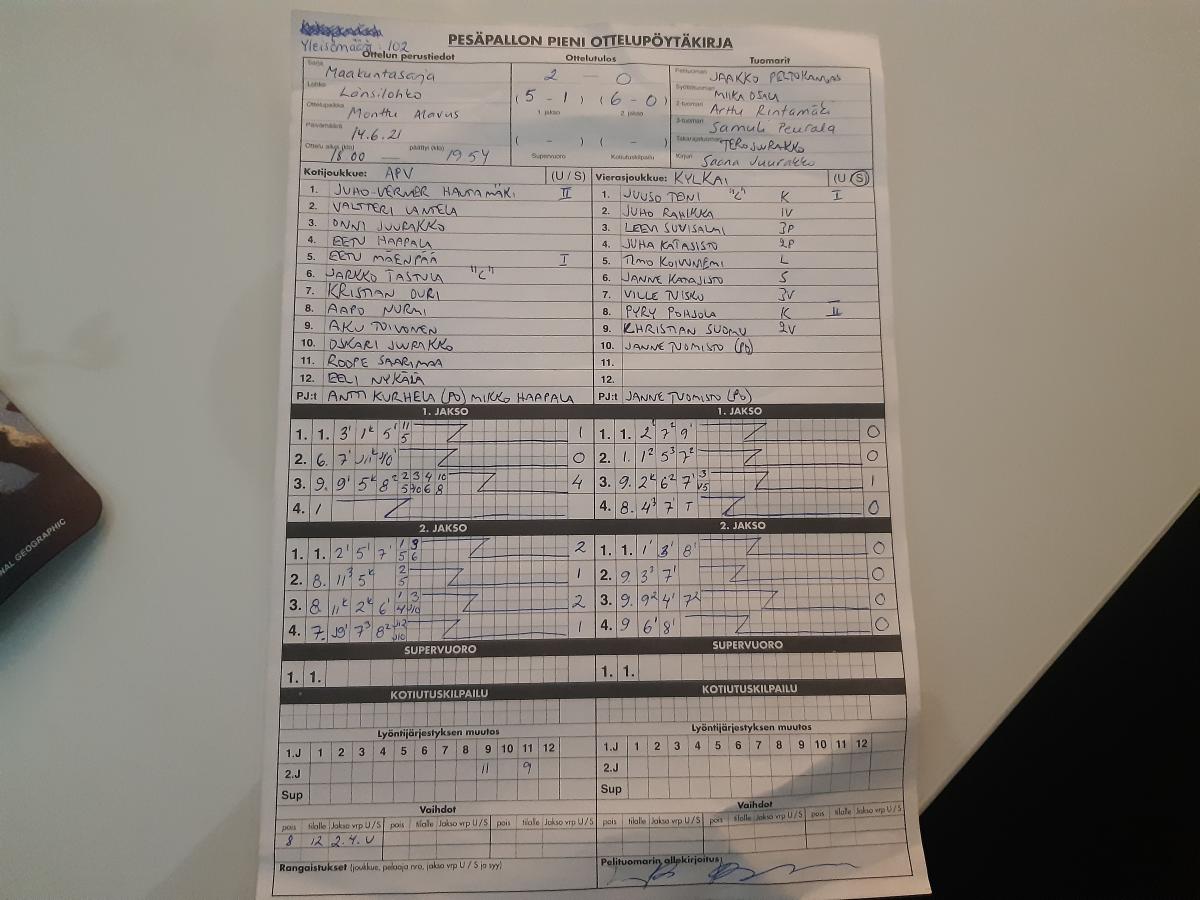 Yleisömäärä: 102
PESÄPALLON PIENI OTTELUPÖYTÄKIRJA
Ottelun perustiedot Ottelutulos Tuomarit
Sarja Maakuntasarja 2 — 0 Pelituomari JAAKKO PELTOKANGAS
Lohko Länsilohko (5 - 1) (6 - 0) Syöttötuomari MIIKA OSALA
1 jakso 2 jakso
Ottelupaikka Monttu Alavus 2-tuomari Arttu Rintamäki
Päivämäärä 14.6.21 3-tuomari Samuli Peurala
( - ) ( - ) Takarajatuomari TERO JUURAKKO
Ottelu alkoi (klo) 18 00 — päättyi (klo) 19 54 Supervuoro Kotiutuskilpailu Kirjuri Saana Juurakko
Kotijoukkue: APV (U / S) Vierasjoukkue: KYLKAI (U / S)
1. JUHO-VERNER HAUTAMÄKI II 1. JUUSO TONI "C" K I
2. VALTTERI LANTELA 2. JUHO RAHIKKA 1V
3. ONNI JUURAKKO 3. LEEVI SUVISALMI 3P
4. EETU HAAPALA 4. JUHA KATAJISTO 2P
5. EETU MÄENPÄÄ I 5. TIMO KOIVUNIEMI L
6. JARKKO TASTULA "C" 6. JANNE KATAJISTO S
7. KRISTIAN OURI 7. VILLE TUISKU 3V
8. AAPO NURMI 8. PYRY POHJOLA K II
9. AKU TOIVONEN 9. KHRISTIAN SUOMU 2V
10. OSKARI JUURAKKO 10. JANNE TUOMISTO (PJ)
11. ROOPE SAARIMAA 11.
12. EELI NYKÄLÄ 12.
PJ:t ANTTI KURHELA (PJ) MIKKO HAAPALA PJ:t JANNE TUOMISTO (PJ)
1. JAKSO 1. JAKSO
1. 1. 3' 1k 5' 11 5 1 1. 1. 2' 7² 9' 0
2. 6. 7' 0 2. 1. 1² 5³ 7² 0
3. 9. 9' 5k 8² 2 3 4 10 4 3. 9. 2k 6² 7' 3 1
4. 1 4. 8. 4³ 7' T 0
2. JAKSO 2. JAKSO
1. 1. 2' 5' 7' 1 3 5 6 2 1. 1. 1' 3' 8' 0
2. 8. 11³ 5k 2 5 1 2. 9. 3³ 7' 0
3. 8. 11k 2k 6' 1 3 2 3. 9. 9² 4' 7² 0
4. 7. 7³ 8² 1 4. 9 6' 8' 0
SUPERVUORO SUPERVUORO
1. 1. 1. 1.
KOTIUTUSKILPAILU KOTIUTUSKILPAILU
Lyöntijärjestyksen muutos Lyöntijärjestyksen muutos
1.J 1 2 3 4 5 6 7 8 9 10 11 12 1.J 1 2 3 4 5 6 7 8 9 10 11 12
2.J 11 9 2.J
Sup Sup
Vaihdot Vaihdot
pois tilalle Jakso vrp U/S pois tilalle Jakso vrp U/S pois tilalle Jakso vrp U/S pois tilalle Jakso vrp U/S pois tilalle Jakso vrp U/S pois tilalle Jakso vrp U/S
8 12 2.4.U
Rangaistukset (joukkue, pelaaja nro, jakso vrp U / S ja syy) Pelituomarin allekirjoitus
NAL GEOGRAPHIC